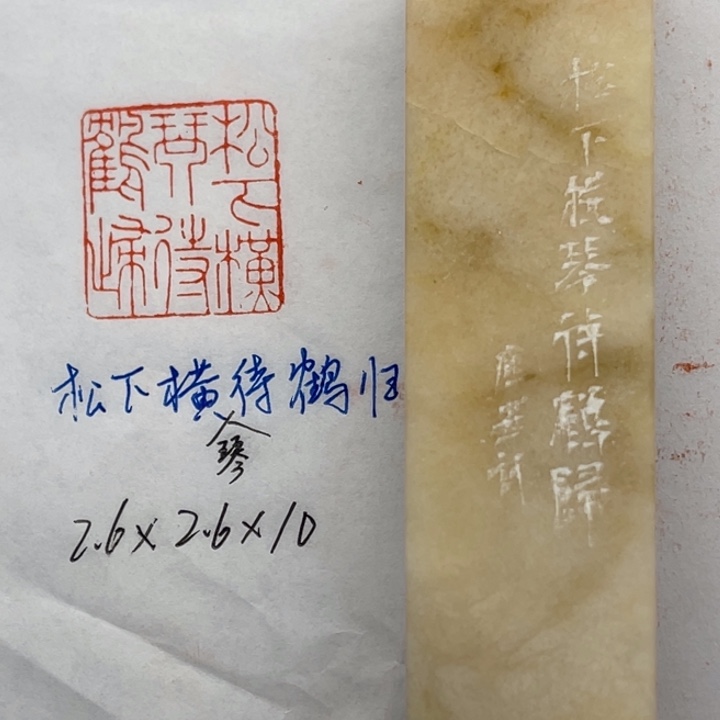 松下橫
琴待
鶴歸
松下橫待鶴归
琴
2.6×2.6×10
松下橫琴待鶴歸